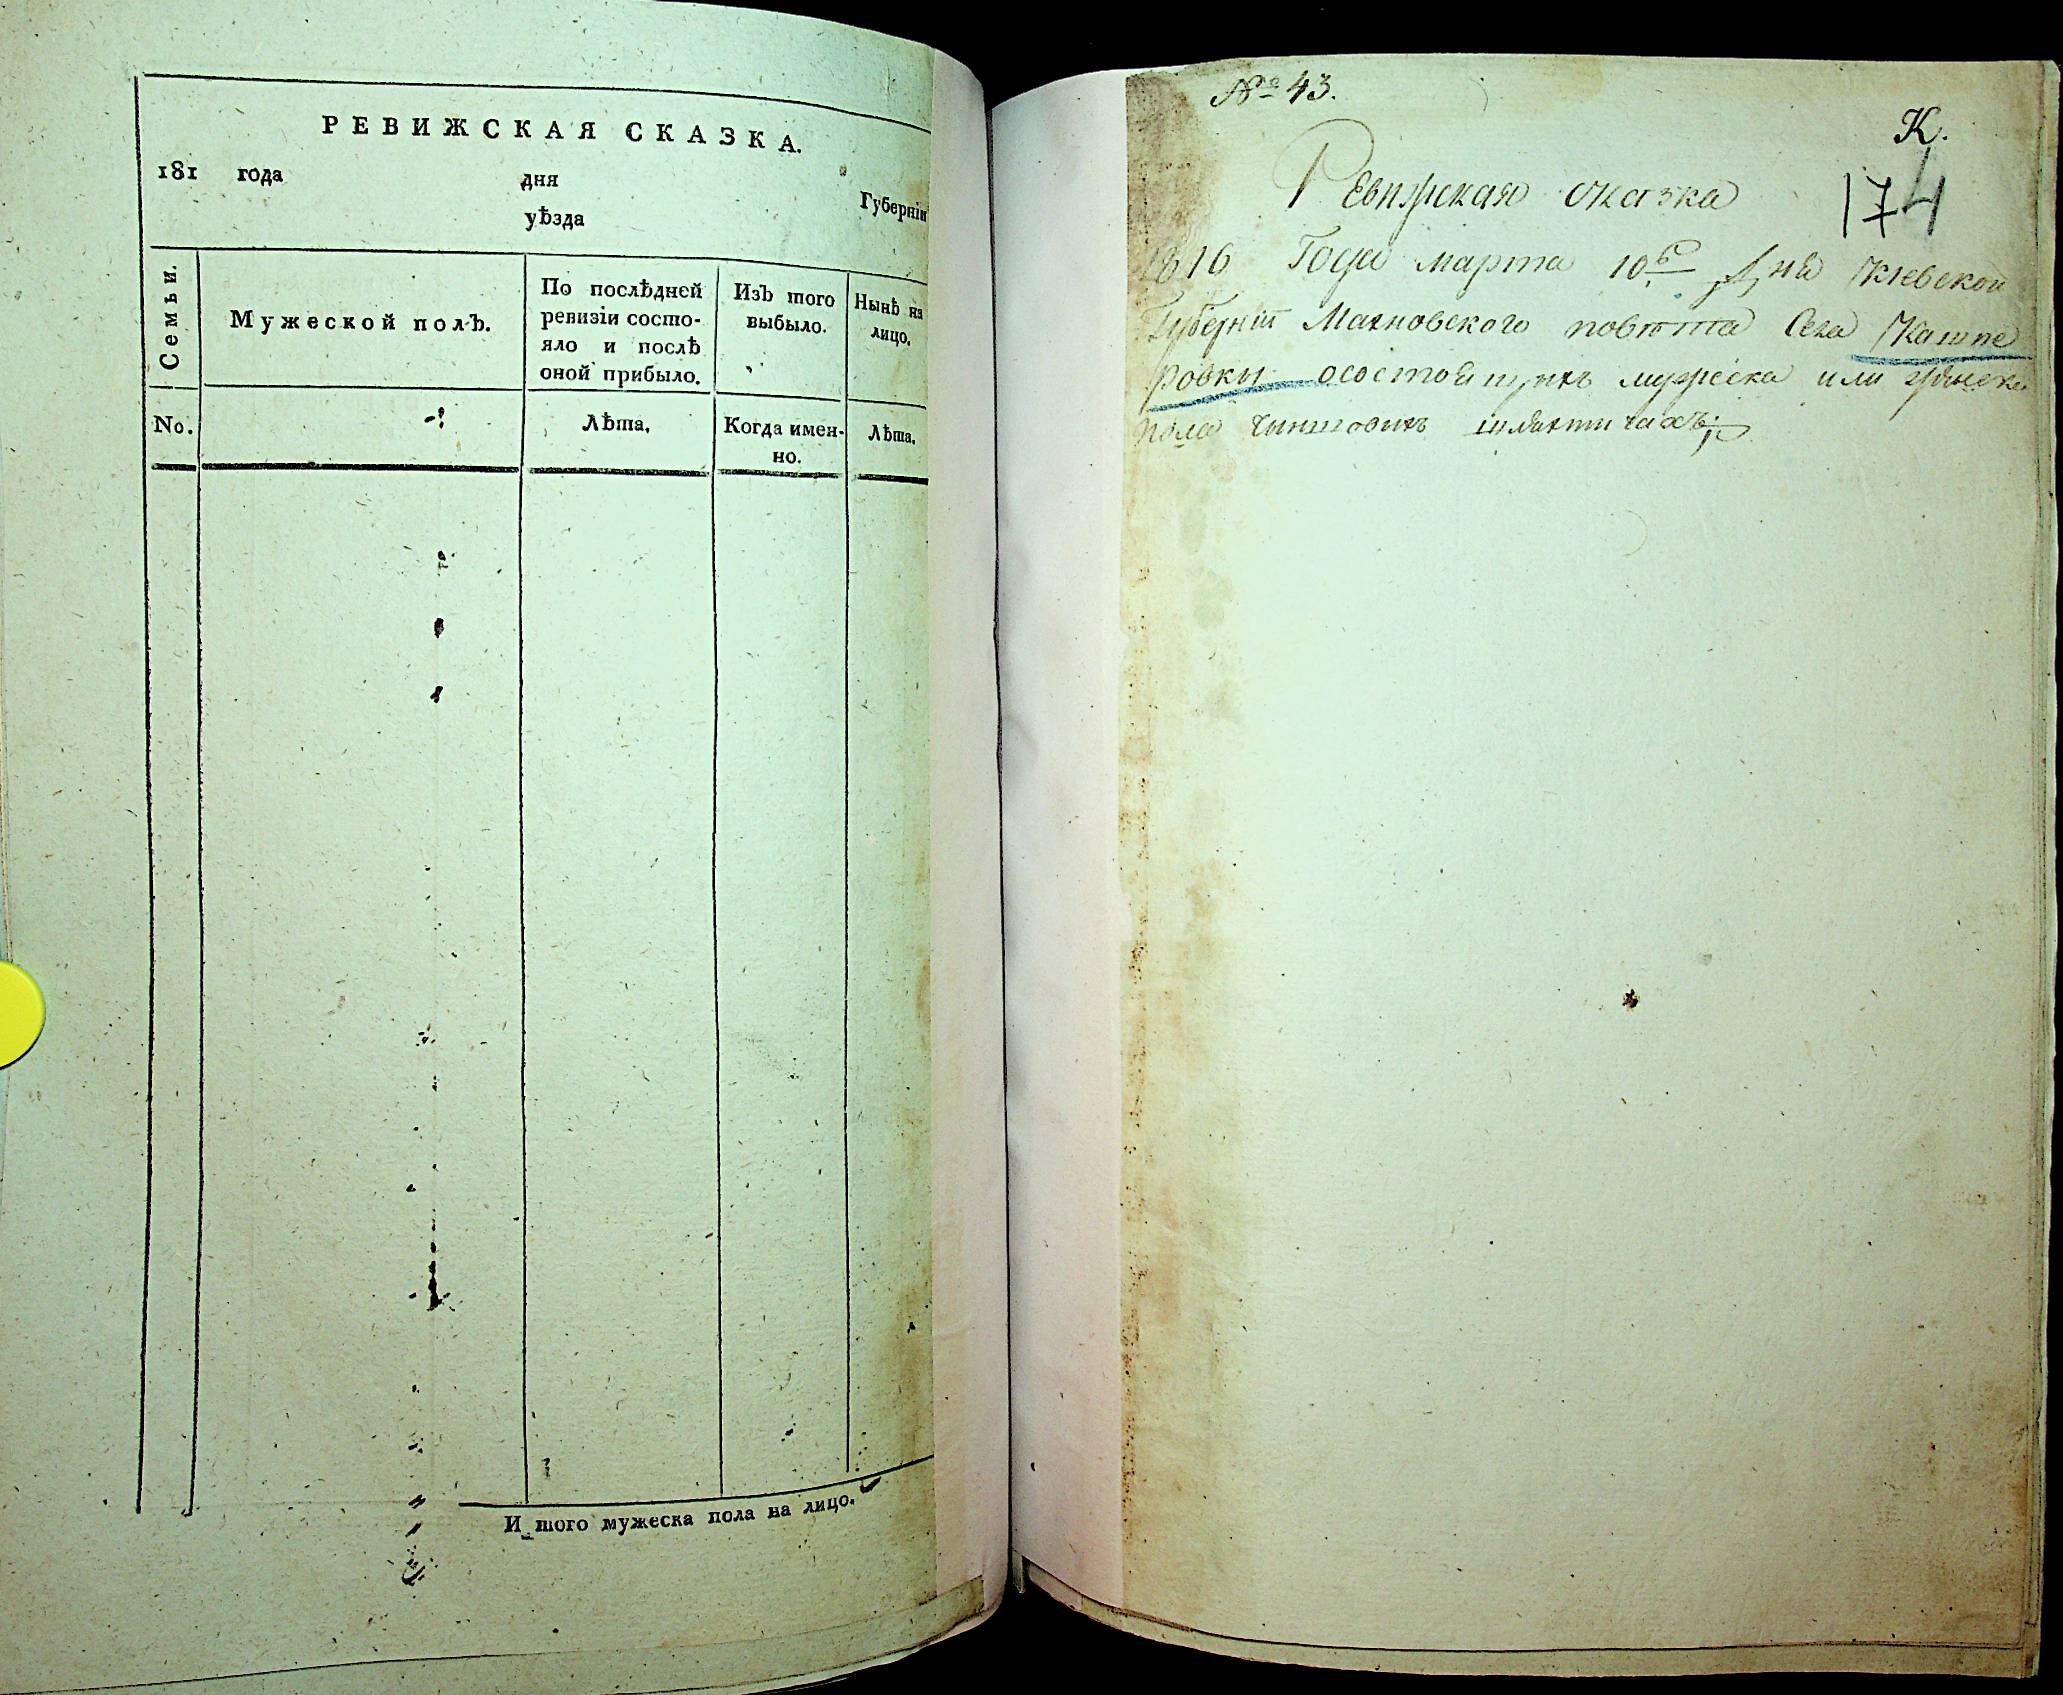 РЕВИЖСКАЯ СКАЗКА.
181 года дня Губерніи
уѣзда
Семьи.
Мужеской полъ.
По послѣдней
ревизіи состо-
яло и послѣ
оной прибыло.
Изъ того
выбыло.
Нынѣ на
лицо.
No.
Лѣта.
Когда имен-
но.
Лѣта.
И того мужеска пола на лицо.
№ 43.
К.
174
Ревижская сказка
1816 Года марта 10го Дня Киевской
Губерніи Махновского повѣта Села Кашпе
ровки осостоящихъ мужеска или женска
пола чиншовихъ шляхтичахъ;